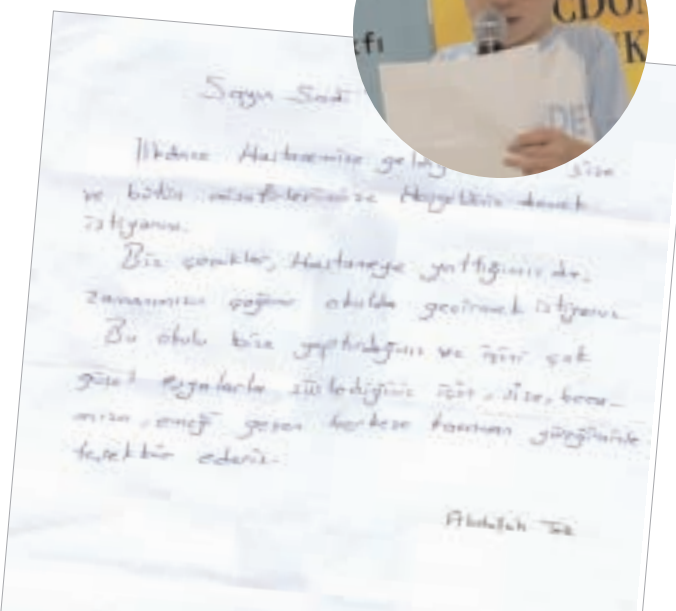 CDON
kfı
UK
DE
Sayın Said
İlkönce Hastanemize geldiğ size
ve bütün misafirlerimize Hoşgeldiniz demek
istiyorum.
Biz çocuklar, Hastaneye yattığımız da.
zamanımızın çoğunu okulda geçirmek istiyoruz
Bu okulu bize yaptırdığınız ve içini çok
güzel eşyalarla süslediğiniz için, size, hoca-
mıza, emeği geçen herkese
teşekkür ederiz.
Abdullah